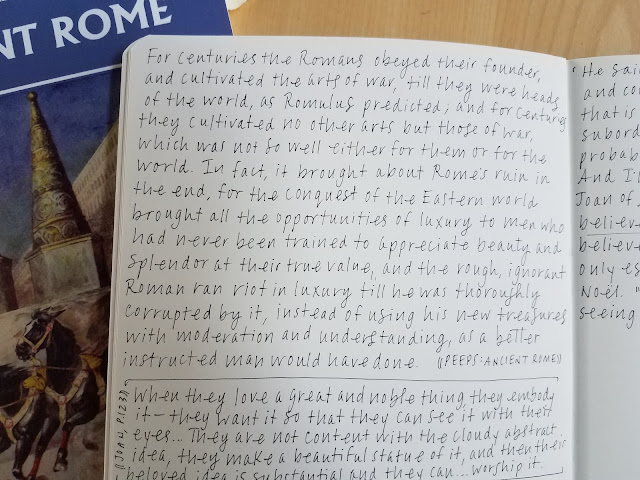 NT ROME
For centuries the Romans obeyed their founder,
and cultivated the arts of war, till they were heads
of the world, as Romulus predicted; and for centuries
they cultivated no other arts but those of war,
which was not so well either for them or for the
world. In fact, it brought about Rome's ruin in
the end, for the conquest of the Eastern world
brought all the opportunities of luxury to men who
had never been trained to appreciate beauty and
splendor at their true value, and the rough, ignorant
Roman ran riot in luxury till he was thoroughly
corrupted by it, instead of using his new treasures
with moderation and understanding, as a better
instructed man would have done. ((PEEPS: ANCIENT ROME))
When they love a great and noble thing, they embody
it — they want it so that they can see it with their
eyes... They are not content with the cloudy abstract
idea, they make a beautiful statue of it, and then their
beloved idea is substantial and they can... worship it.
((JOAN, p.123))
"He said
and co
that is
subord
probab
And I'l
Joan of
believe
believe
only es
Noël. "
seeing